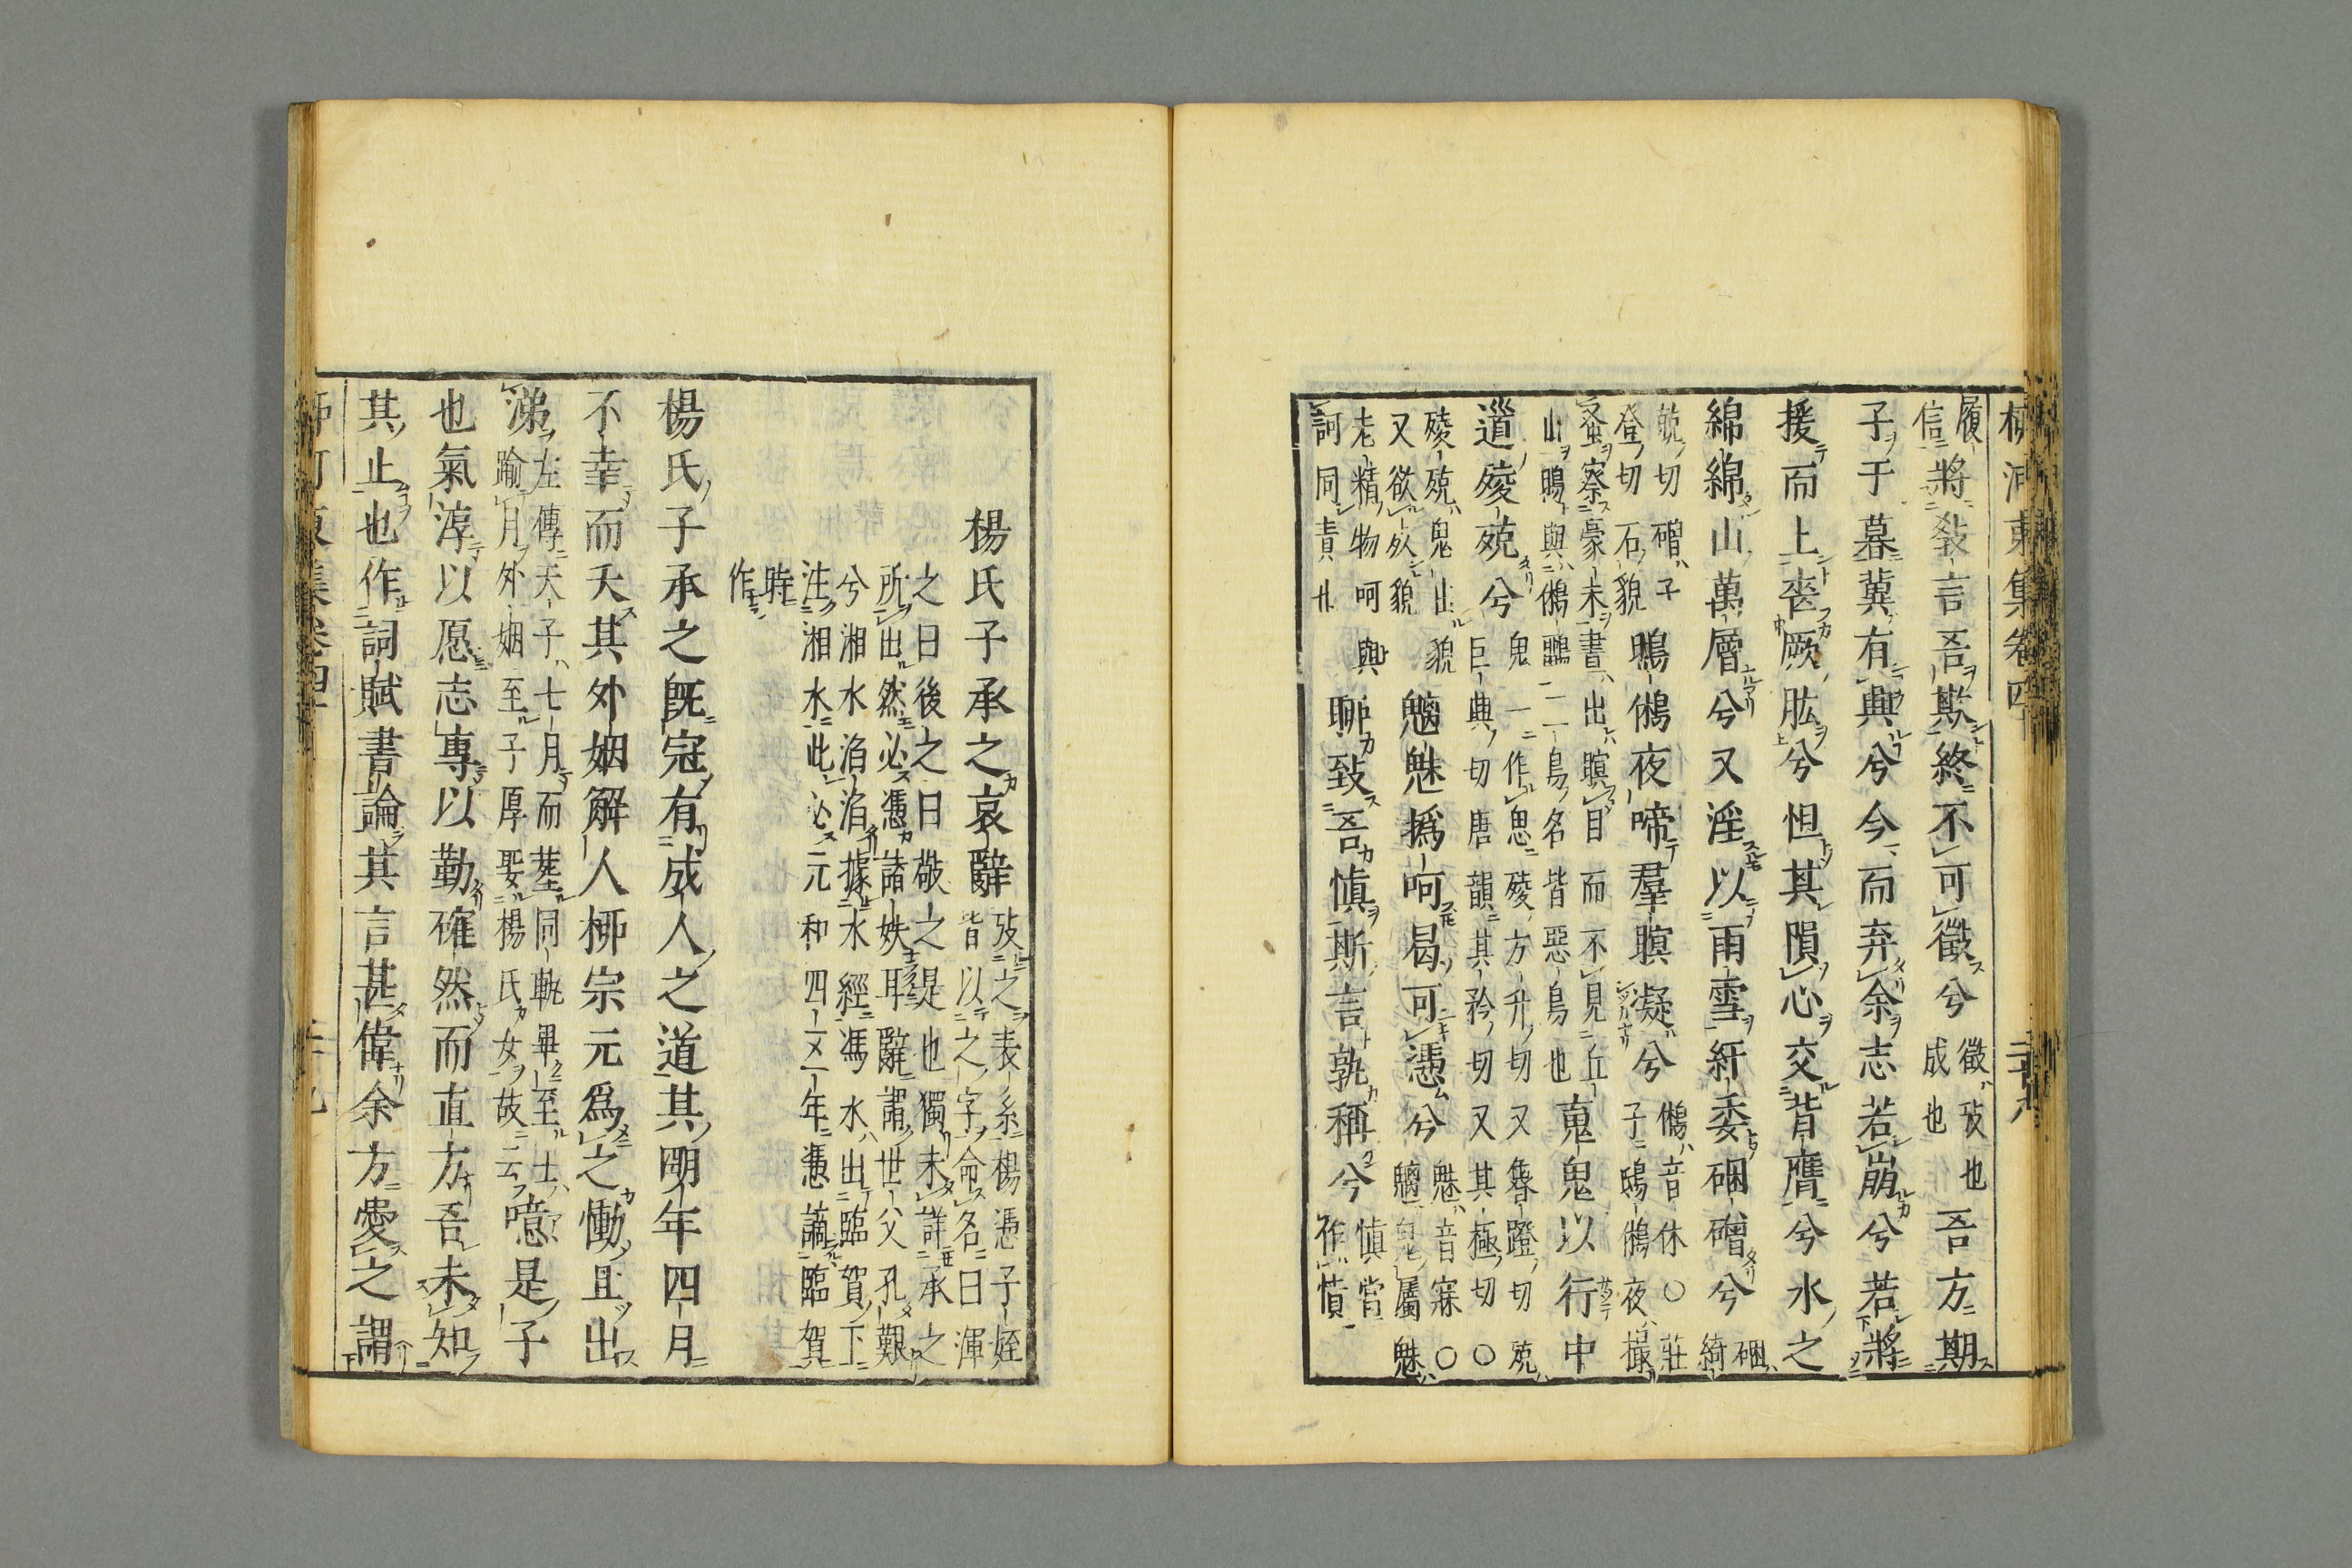 柳河東集卷四十 二十八
履信將敎言吾欺終不可徵兮徵攷也成也吾方期
子于暮冀有與兮今而弃余志若崩兮若將
援而上㘸厥肱兮怛其隕心交背膺兮水之
綿綿山萬層兮又淫以雨雪紆委硱磳兮硱綺
兢切磳子登切石貌鵩鵂夜啼羣瞑凝兮鵂音休○莊子鴟鵂夜撮
蚤察毫末晝出瞑目而不見丘山鵩與鵂鶹一一鳥名皆惡鳥也䰟鬼以行中
道㱥殑兮鬼一作思㱥方升切又䔖蹬切殑巨典切唐韻其矜切又其極切○
㱥殑鬼出貌又欲死貌魑魅撝呵曷可憑兮魅音寐○魑鬼屬魅
老精物呵與訶同責也聊致吾愼斯言孰稱兮愼當作憤
楊氏子承之哀辭攷之表系楊憑子姪皆以之字命名曰渾
之曰後之曰敬之是也獨未詳承之
所出然必憑諸姪耳辭謂世父孔艱
兮湘水滔滔據水經馮水出臨賀下
注湘水此必元和四五年憑謫臨賀
時作
楊氏子承之旣冠有成人之道其明年四月
不幸而夭其外姻解人柳宗元爲之慟且出
涕左傳天子七月而葬同軌畢至士踰月外姻至子厚娶楊氏女故云噫是子
也氣淳以愿志專以勤確然而直方吾未知
其止也作詞賦書論其言甚偉余方愛之謂
柳河東集卷四十 二十九